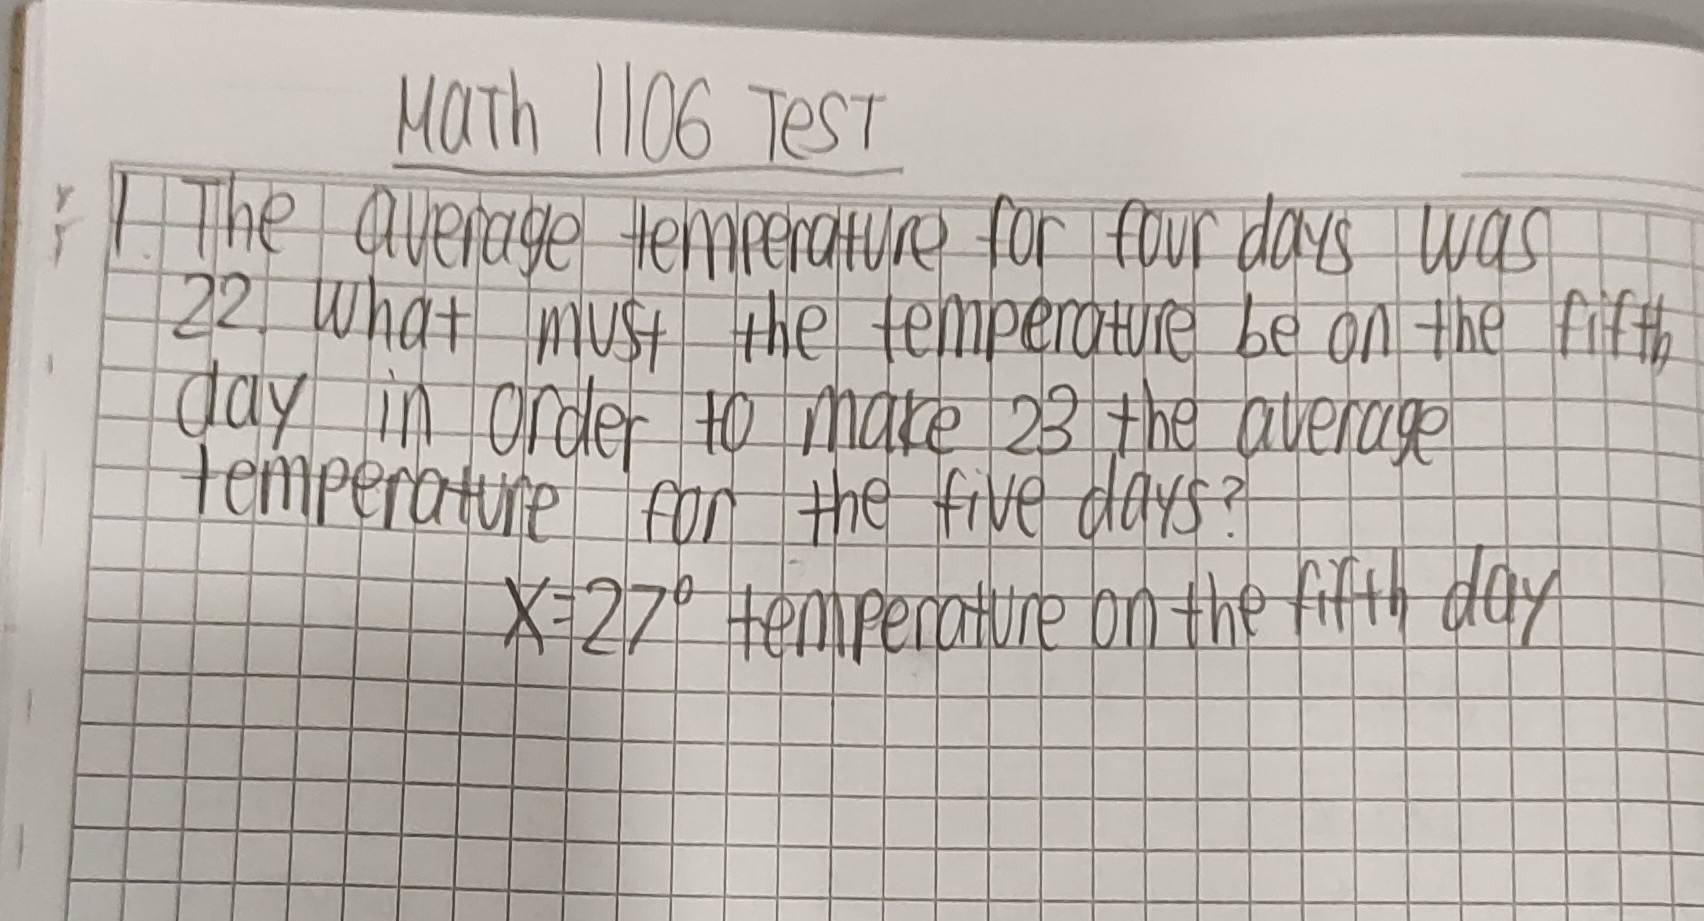 Math 1106 Test
1. The average temperature for four days was
22. What must the temperature be on the fifth
day in order to make 23 the average
temperature for the five days?
x=27° temperature on the fifth day